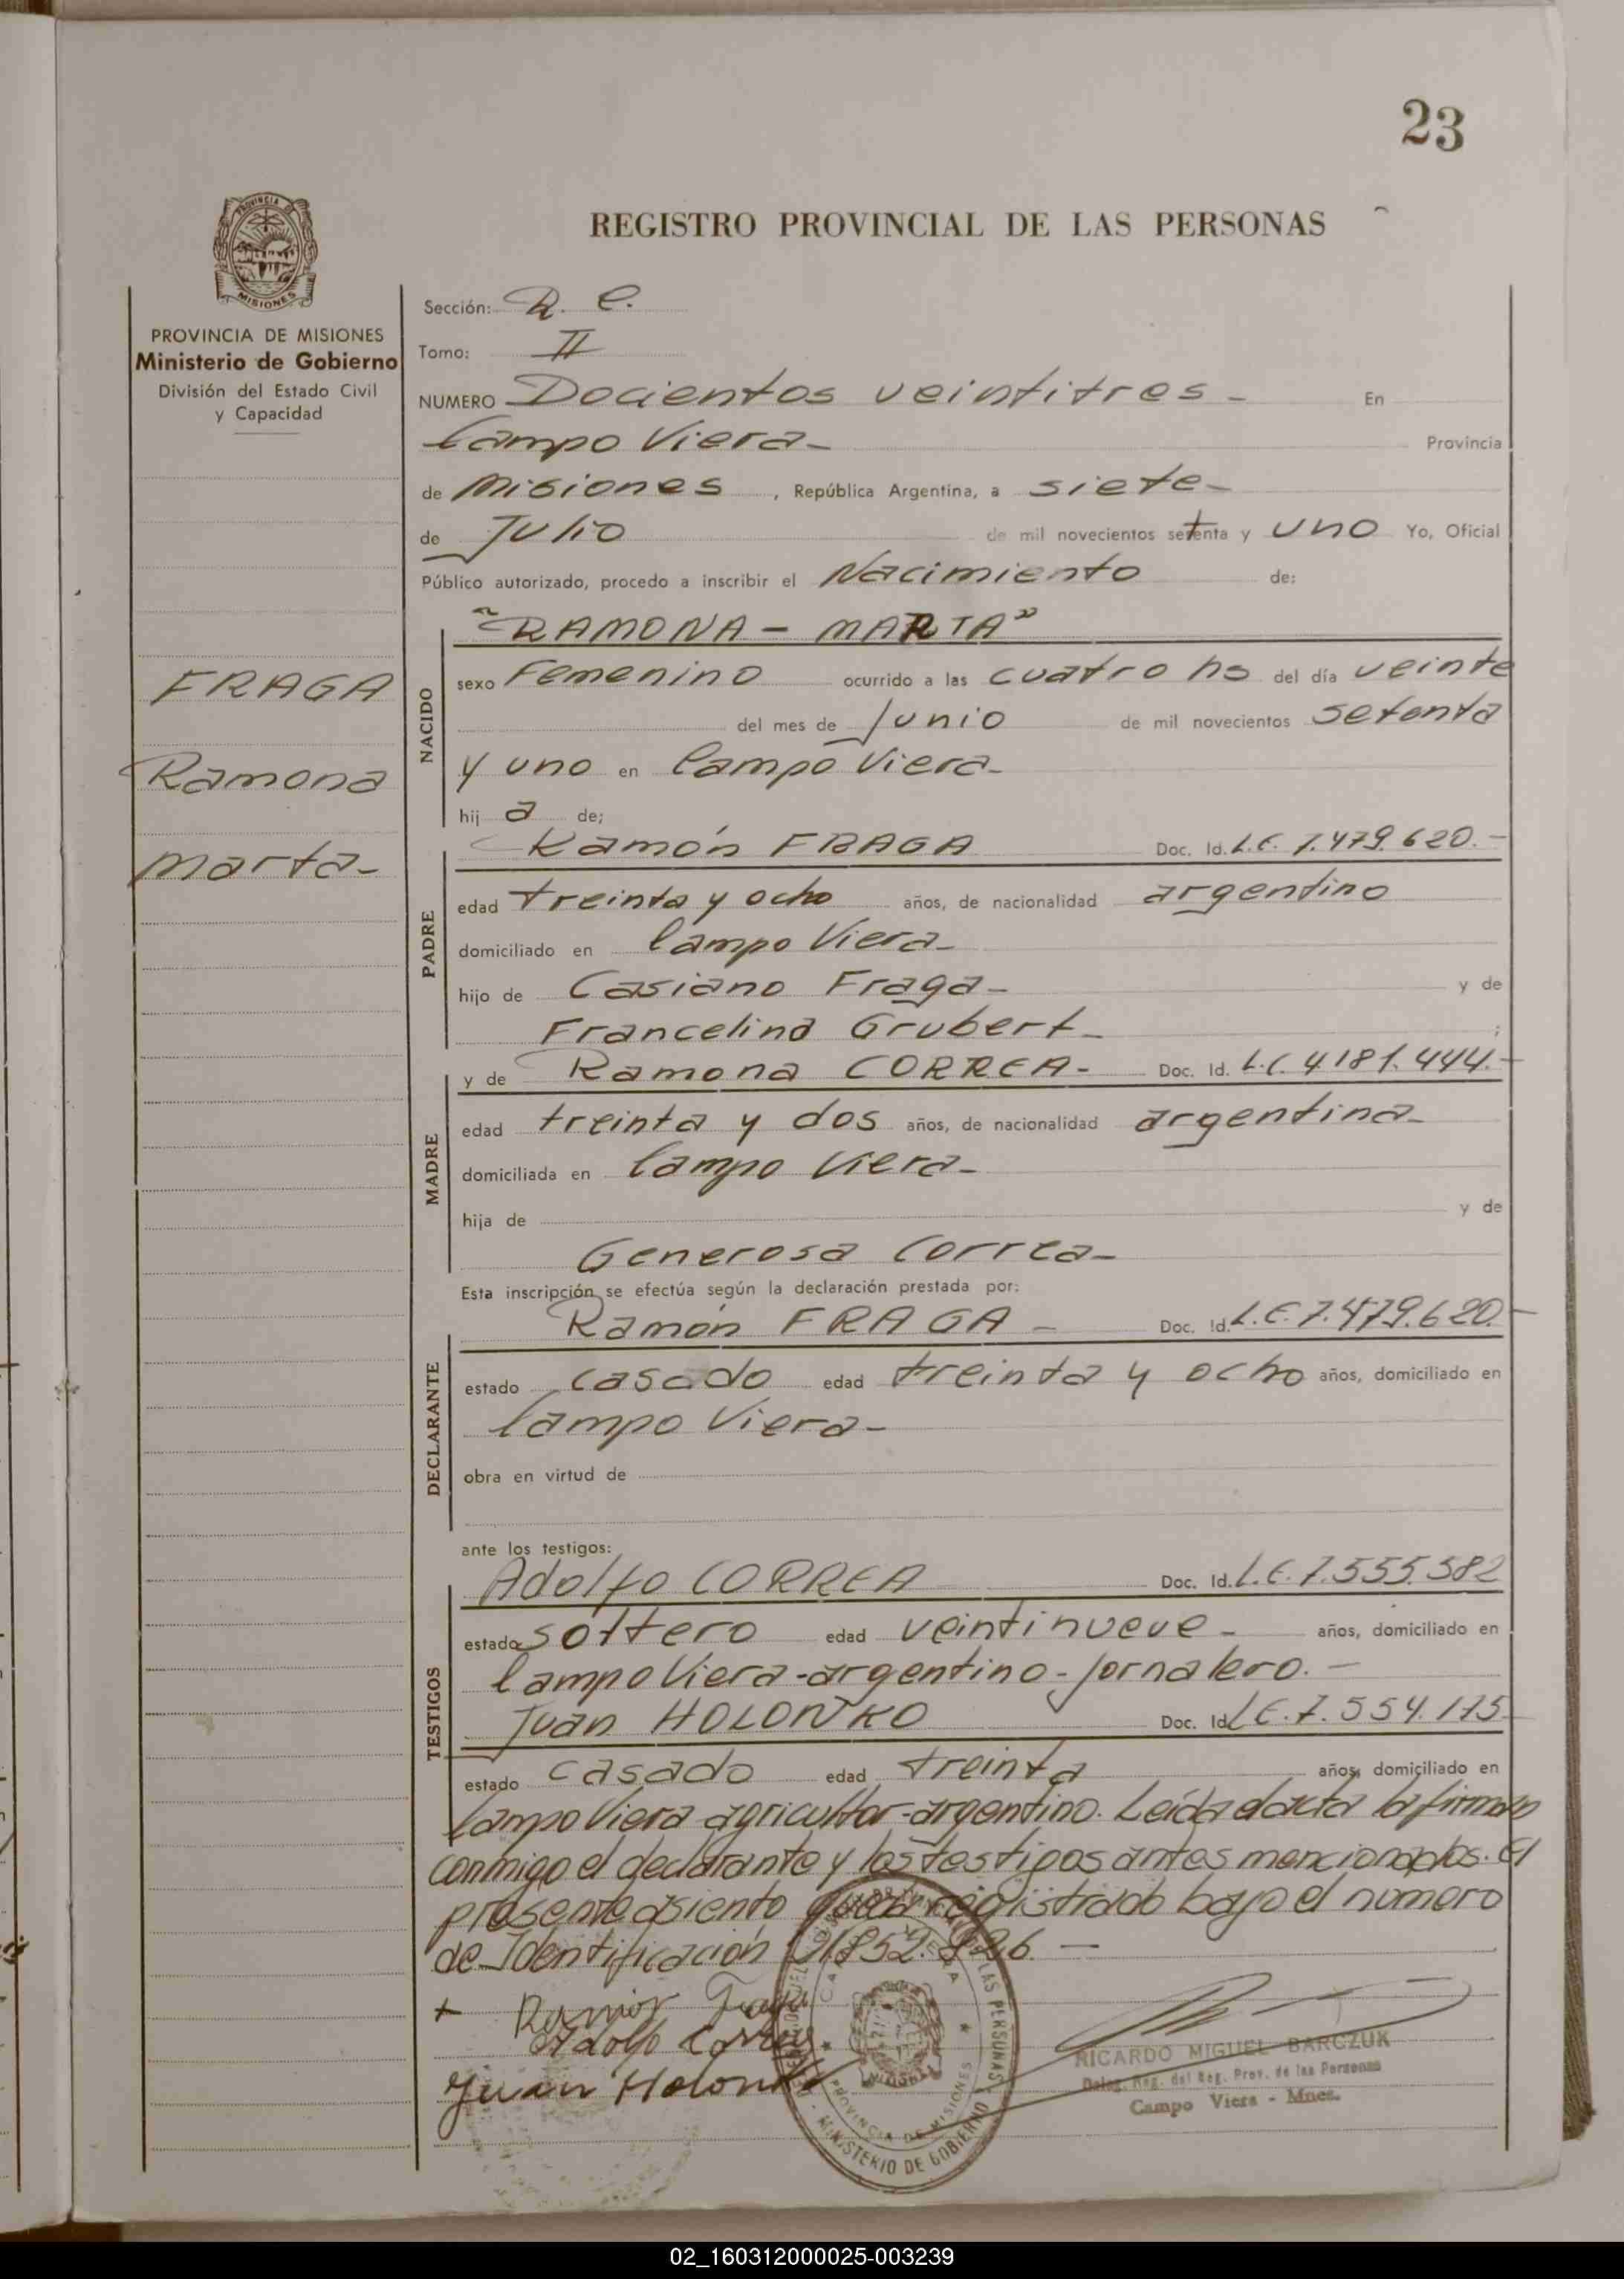 23
REGISTRO PROVINCIAL DE LAS PERSONAS
PROVINCIA DE MISIONES
Ministerio de Gobierno
División del Estado Civil
y Capacidad
FRAGA
Ramona
Marta-
Sección: R. C.
Tomo: II
NUMERO Docientos veintitres - En
Campo Viera- Provincia
de Misiones, República Argentina, a siete-
de Julio de mil novecientos setenta y uno Yo, Oficial
Público autorizado, procedo a inscribir el Nacimiento de:
NACIDO
"RAMONA - MARTA"
sexo Femenino ocurrido a las cuatro hs del día veinte
del mes de Junio de mil novecientos setenta
y uno en Campo Viera-
hij a de;
PADRE
Ramón FRAGA Doc. Id. L.E. 7.479.620.-
edad treinta y ocho años, de nacionalidad argentino
domiciliado en Campo Viera-
hijo de Casiano Fraga- y de
Francelina Grubert- ;
MADRE
y de Ramona CORREA- Doc. Id. L.C. 4.181.444.-
edad treinta y dos años, de nacionalidad argentina-
domiciliada en Campo Viera-
hija de y de
Generosa Correa-
Esta inscripción se efectúa según la declaración prestada por:
DECLARANTE
Ramón FRAGA - Doc. Id. L.E. 7.479.620.-
estado casado edad treinta y ocho años, domiciliado en
Campo Viera-
obra en virtud de
ante los testigos:
TESTIGOS
Adolfo CORREA Doc. Id. L.E. 7.555.582
estado soltero edad veintinueve- años, domiciliado en
Campo Viera-argentino-jornalero.-
Juan HOLONKO Doc. Id. L.E. 7.554.175
estado casado edad treinta años, domiciliado en
Campo Viera-agricultor-argentino. Leída el acta la firman
conmigo el declarante y los testigos antes mencionados. El
presente asiento queda registrado bajo el numero
de Identificación 21.852.826.-
Ramón Fraga
Adolfo Correa
Juan Holonko
MINISTERIO DE GOBIERNO
PROVINCIA DE MISIONES
RICARDO MIGUEL BARCZUK
Deleg. Reg. del Reg. Prov. de las Personas
Campo Viera - Mnes.
02_160312000025-003239